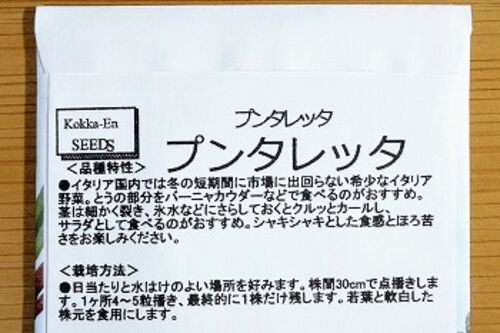 プンタレッタ
Kokka-En
SEEDS
プンタレッタ
＜品種特性＞
●イタリア国内では冬の短期間に市場に出回らない希少なイタリア
野菜。とうの部分をバーニャカウダーなどで食べるのがおすすめ。
茎は細かく裂き、氷水などにさらしておくとクルッとカールし、
サラダとして食べるのがおすすめ。シャキシャキとした食感とほろ苦
さをお楽しみください。
＜栽培方法＞
●日当たりと水はけのよい場所を好みます。株間30cmで点播きしま
す。1ヶ所4～5粒播き、最終的に1株だけ残します。若葉と軟白した
株元を食用にします。